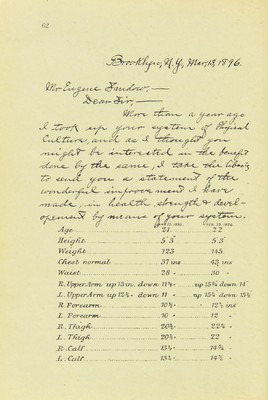 62
Brooklyn, N.Y., Mar, 18, 1896.
Mr Eugene Sandow,—
Dear Sir,—
More than a year ago
I took up your system of Physical
Culture, and as I thought you
might be interested in the benefit
done by the same, I take the liberty
to send you a statement of the
wonderful improvement I have
made, in health strength & devel-
opement by means of your system.
Age 21 22
Height 5' 3" 5' 3"
Weight 123 145
Chest normal 37 ins 43 ins
Waist 28 " 30 "
R. Upper Arm up 13 in. down 11½ " up 15¾ down 14"
L. Upper Arm up 12½ " down 11 " up 15¼ down 13½
R. Forearm 10½ " 12½ ins
L. Forearm 10 " 12 "
R. Thigh 20½ 22½ "
L. Thigh 20½ 22 "
R. Calf 13½ 14¾ "
L. Calf 13¼ 14½ "